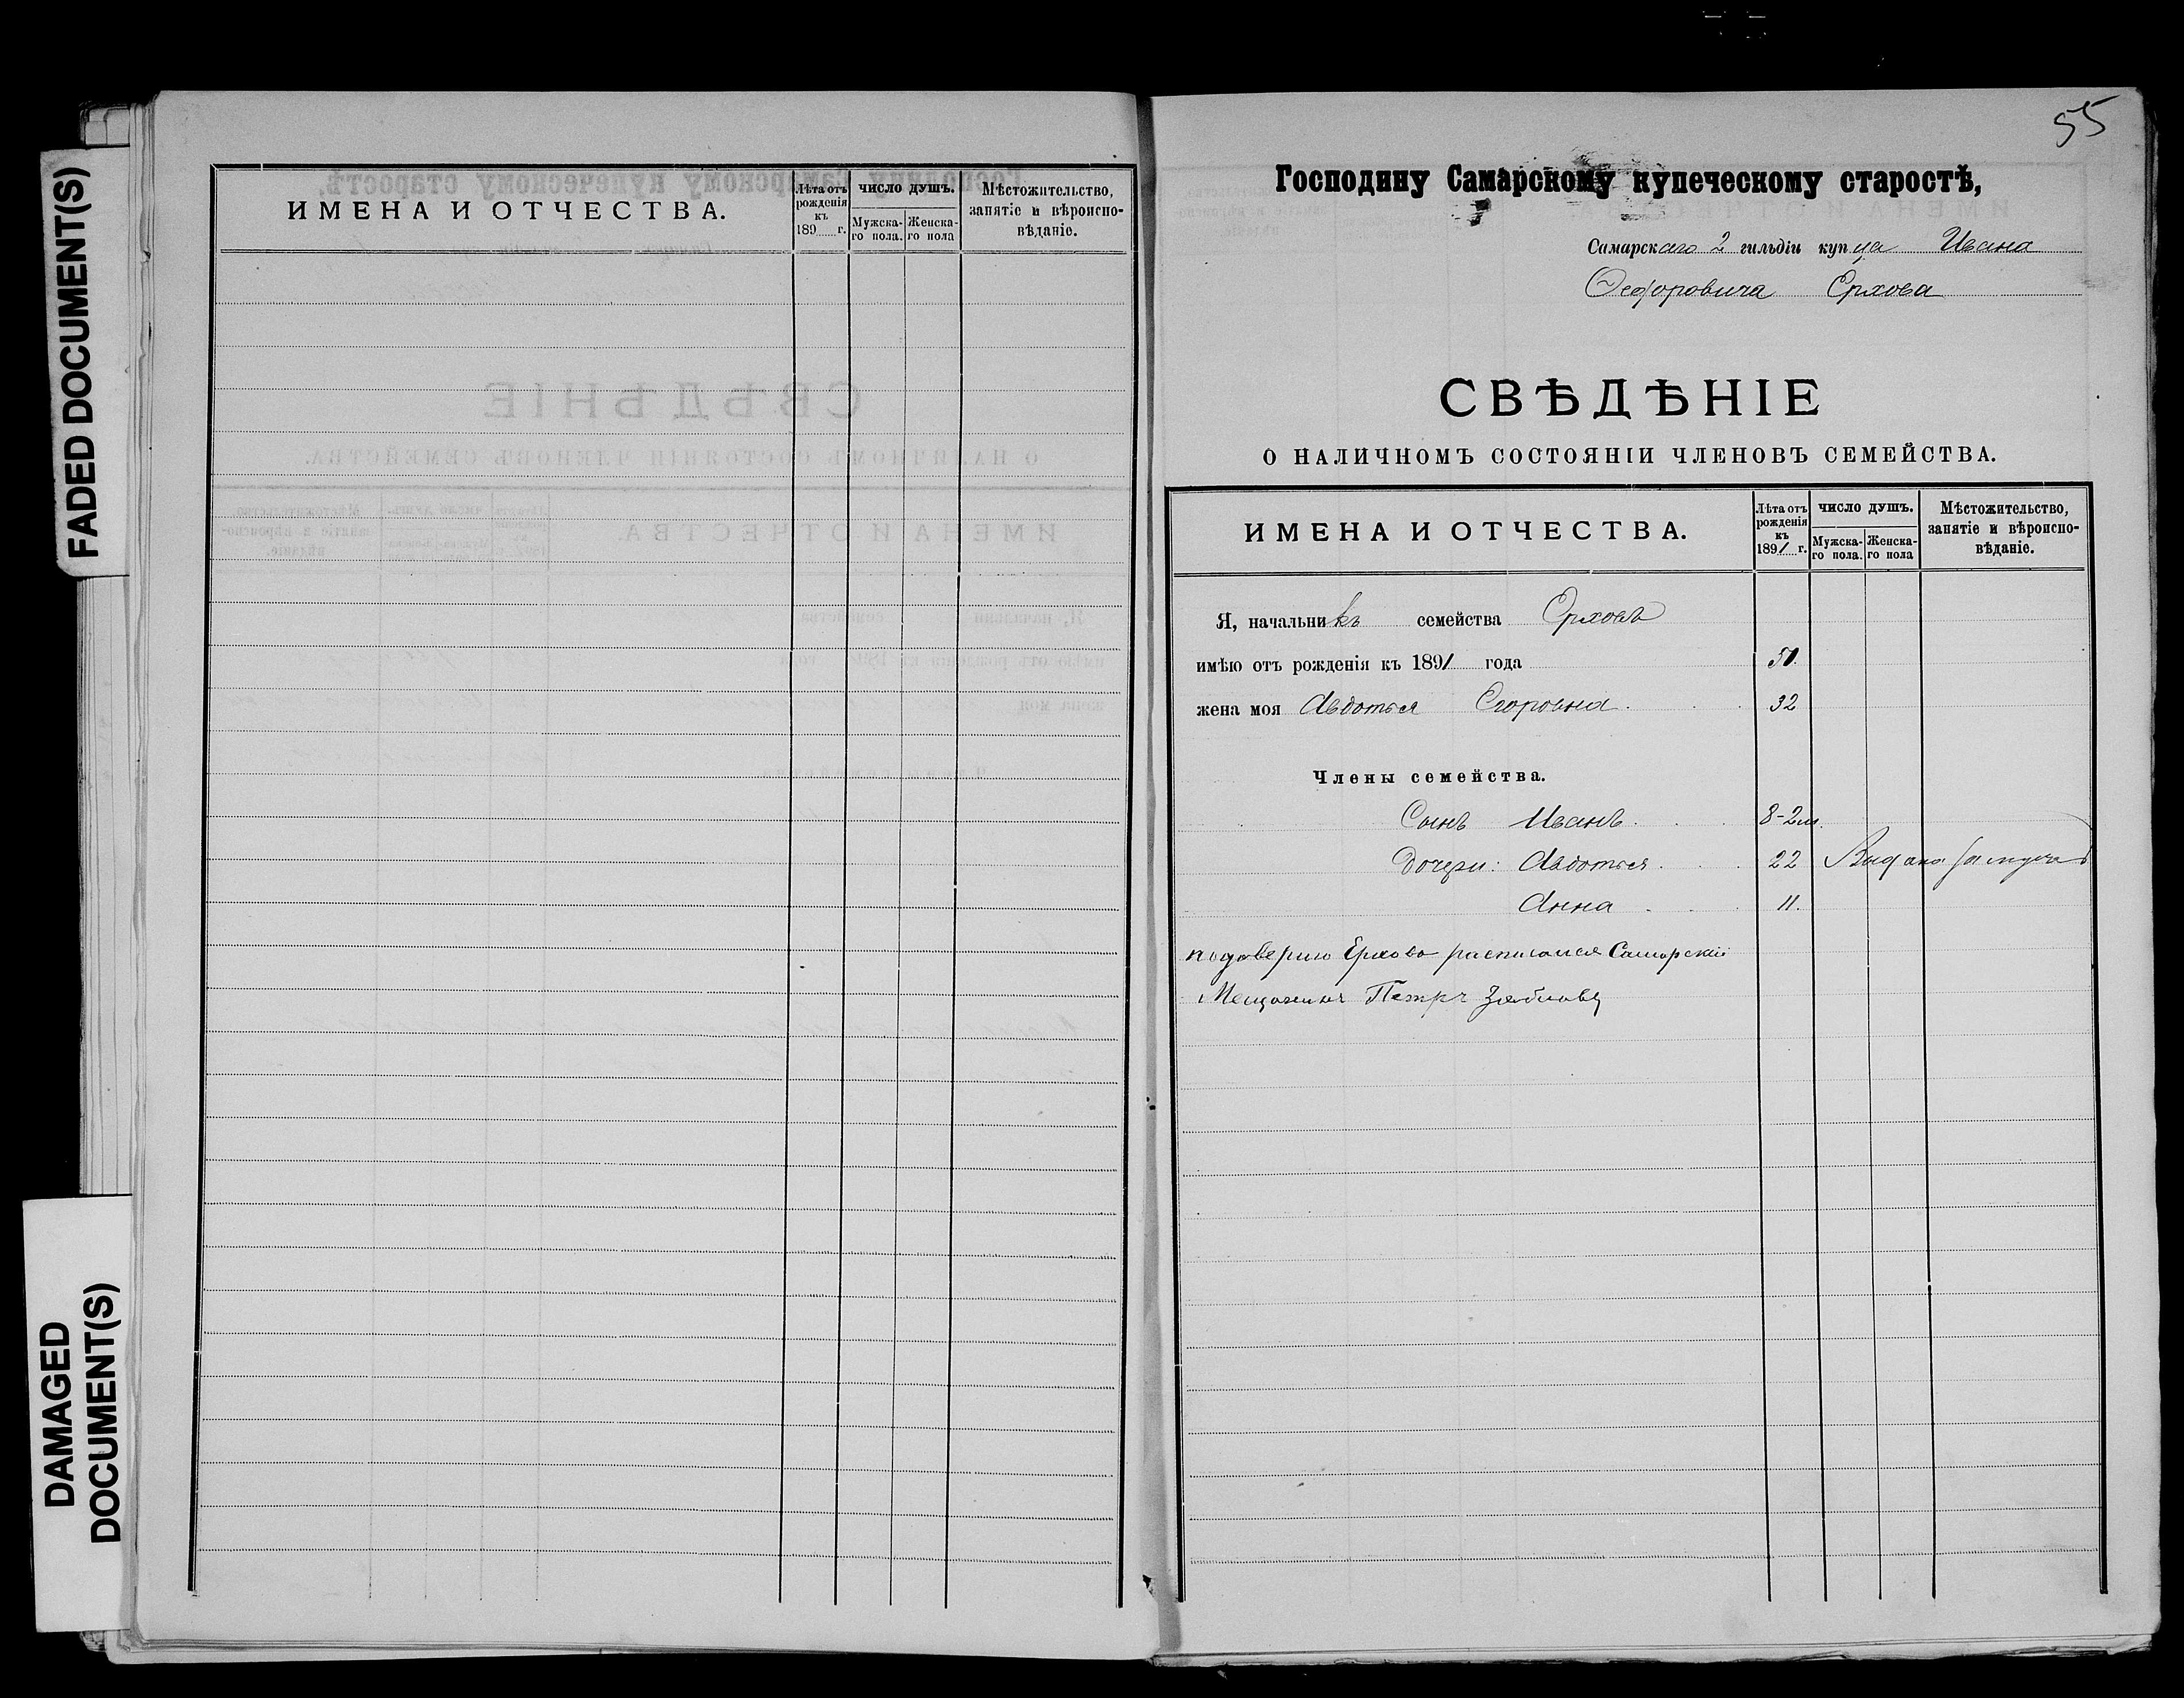 FADED DOCUMENT(S)
DAMAGED
DOCUMENT(S)
ИМЕНА И ОТЧЕСТВА.
Лѣта отъ
рожденія
къ
189 г.
ЧИСЛО ДУШЪ.
Мужска-
го пола.
Женска-
го пола
Мѣстожительство,
занятіе и вѣроиспо-
вѣданіе.
55
Господину Самарскому купеческому старостѣ,
Самарскаго 2 гильдіи купца Ивана
Федоровича Ерхова
СВѢДѢНІЕ
О НАЛИЧНОМЪ СОСТОЯНІИ ЧЛЕНОВЪ СЕМЕЙСТВА.
ИМЕНА И ОТЧЕСТВА.
Лѣта отъ
рожденія
къ
1891 г.
ЧИСЛО ДУШЪ.
Мужска-
го пола.
Женска-
го пола
Мѣстожительство,
занятіе и вѣроиспо-
вѣданіе.
Я, начальникъ семейства Ерховъ
имѣю отъ рожденія къ 1891 года 51.
жена моя Авдотья Егоровна. 32
Члены семейства.
Сынъ Иванъ. 8-2м.
Дочери: Авдотья. 22 Выдана
Анна. 11.
подоверию Ерхова росписался Самарскій
Мещанинъ Петръ